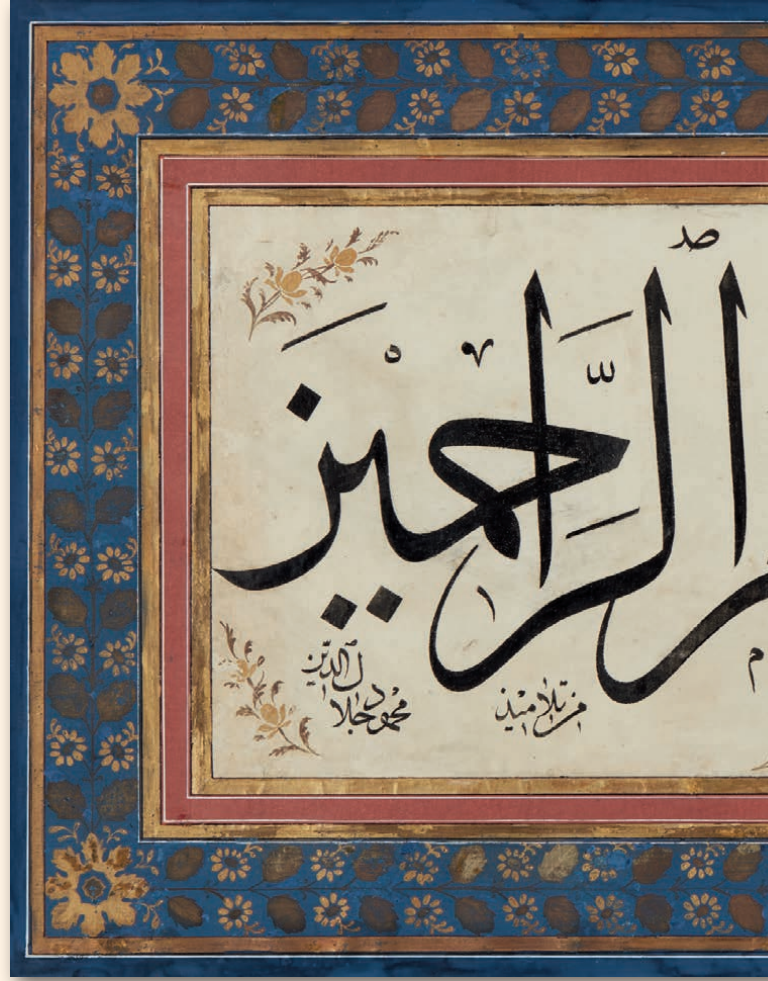 الرَّاحمين
من تلاميذ محمود جلال الدين